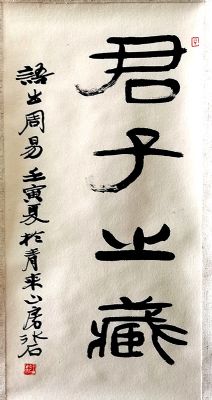 君子之藏
語出周易 壬寅夏於青来山房